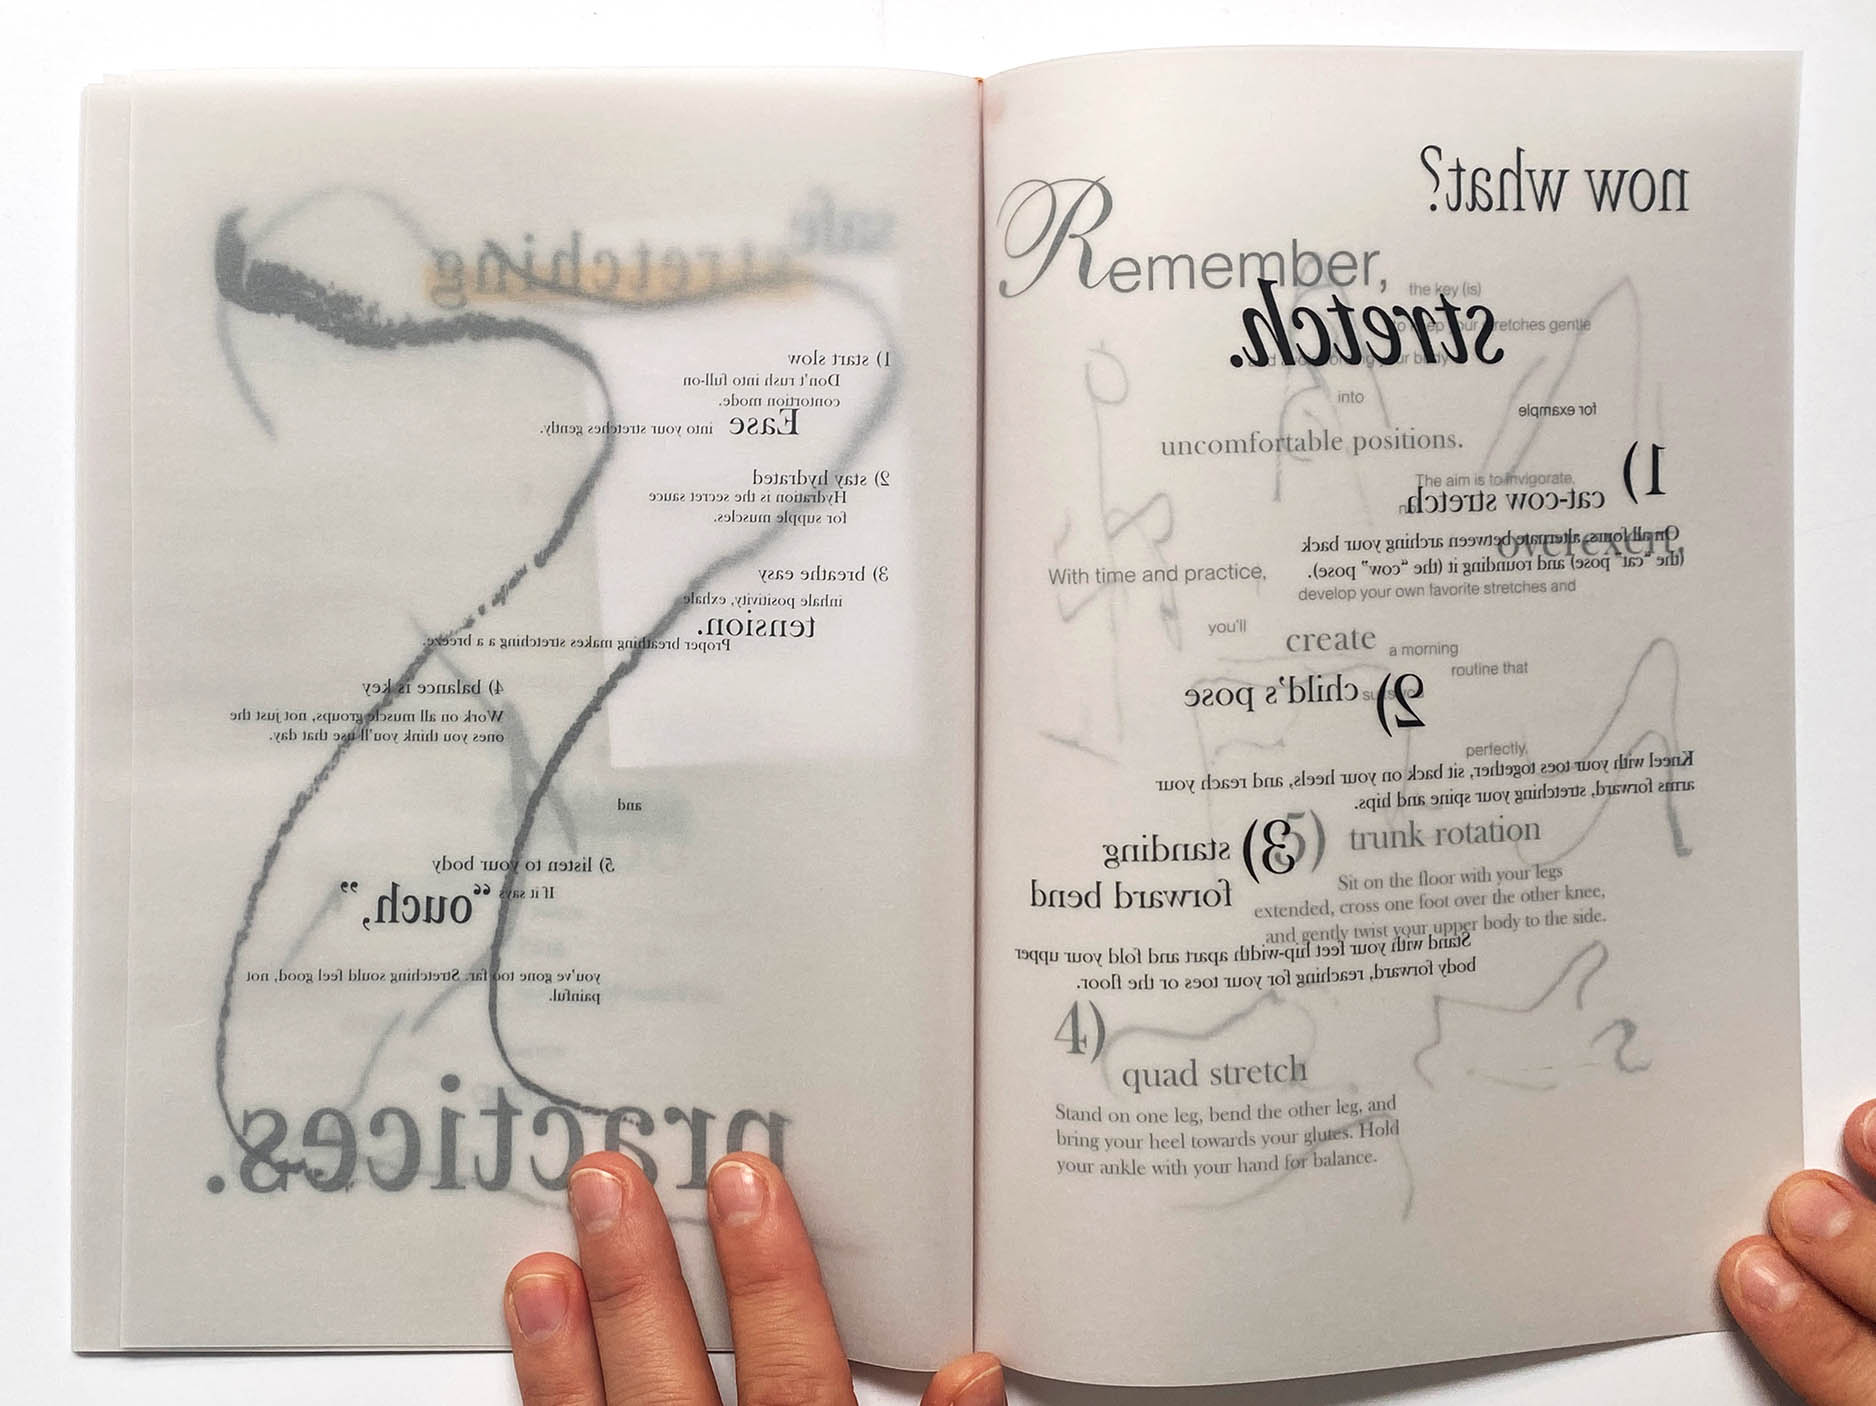 safe
stretching
1) start slow
Don't rush into full-on
contortion mode.
Ease into your stretches gently.
2) stay hydrated
Hydration is the secret sauce
for supple muscles.
3) breathe easy
inhale positivity, exhale
tension.
Proper breathing makes stretching a a breeze.
4) balance is key
Work on all muscle groups, not just the
ones you think you'll use that day.
and
5) listen to your body
If it says “ouch,”
you've gone too far. Stretching sould feel good, not
painful.
practices.
now what?
stretch.
for example
1)
cat-cow stretch
On all fours, alternate between arching your back
(the “cat” pose) and rounding it (the “cow” pose).
2) child's pose
Kneel with your toes together, sit back on your heels, and reach your
arms forward, stretching your spine and hips.
3) standing
forward bend
Stand with your feet hip-width apart and fold your upper
body forward, reaching for your toes or the floor.
Remember,
the key (is)
to keep your stretches gentle
your body
into
uncomfortable positions.
The aim is to invigorate,
overexert.
With time and practice,
develop your own favorite stretches and
you'll
create a morning
routine that
perfectly,
5) trunk rotation
Sit on the floor with your legs
extended, cross one foot over the other knee,
and gently twist your upper body to the side.
4)
quad stretch
Stand on one leg, bend the other leg, and
bring your heel towards your glutes. Hold
your ankle with your hand for balance.